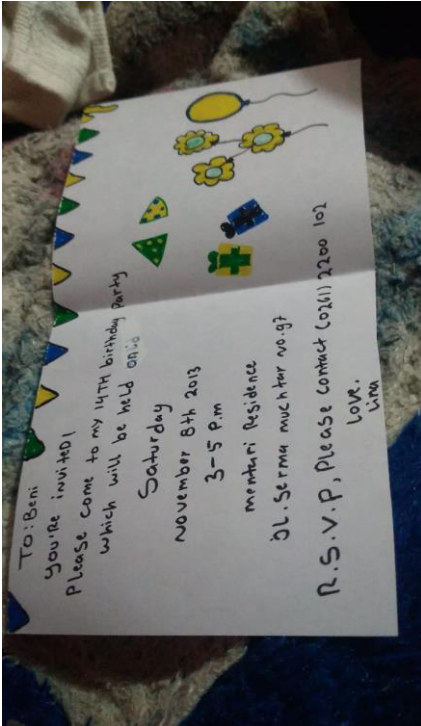 TO: Beni
YOU'RE INVITED!
Please come to my 14TH birthday Party
which will be held on:
Saturday
November 8th 2013
3-5 P.m
mentari Residence
JL. Serma muchtar no.97
R.S.V.P, Please contact (0261) 2200 102
Love.
Lina